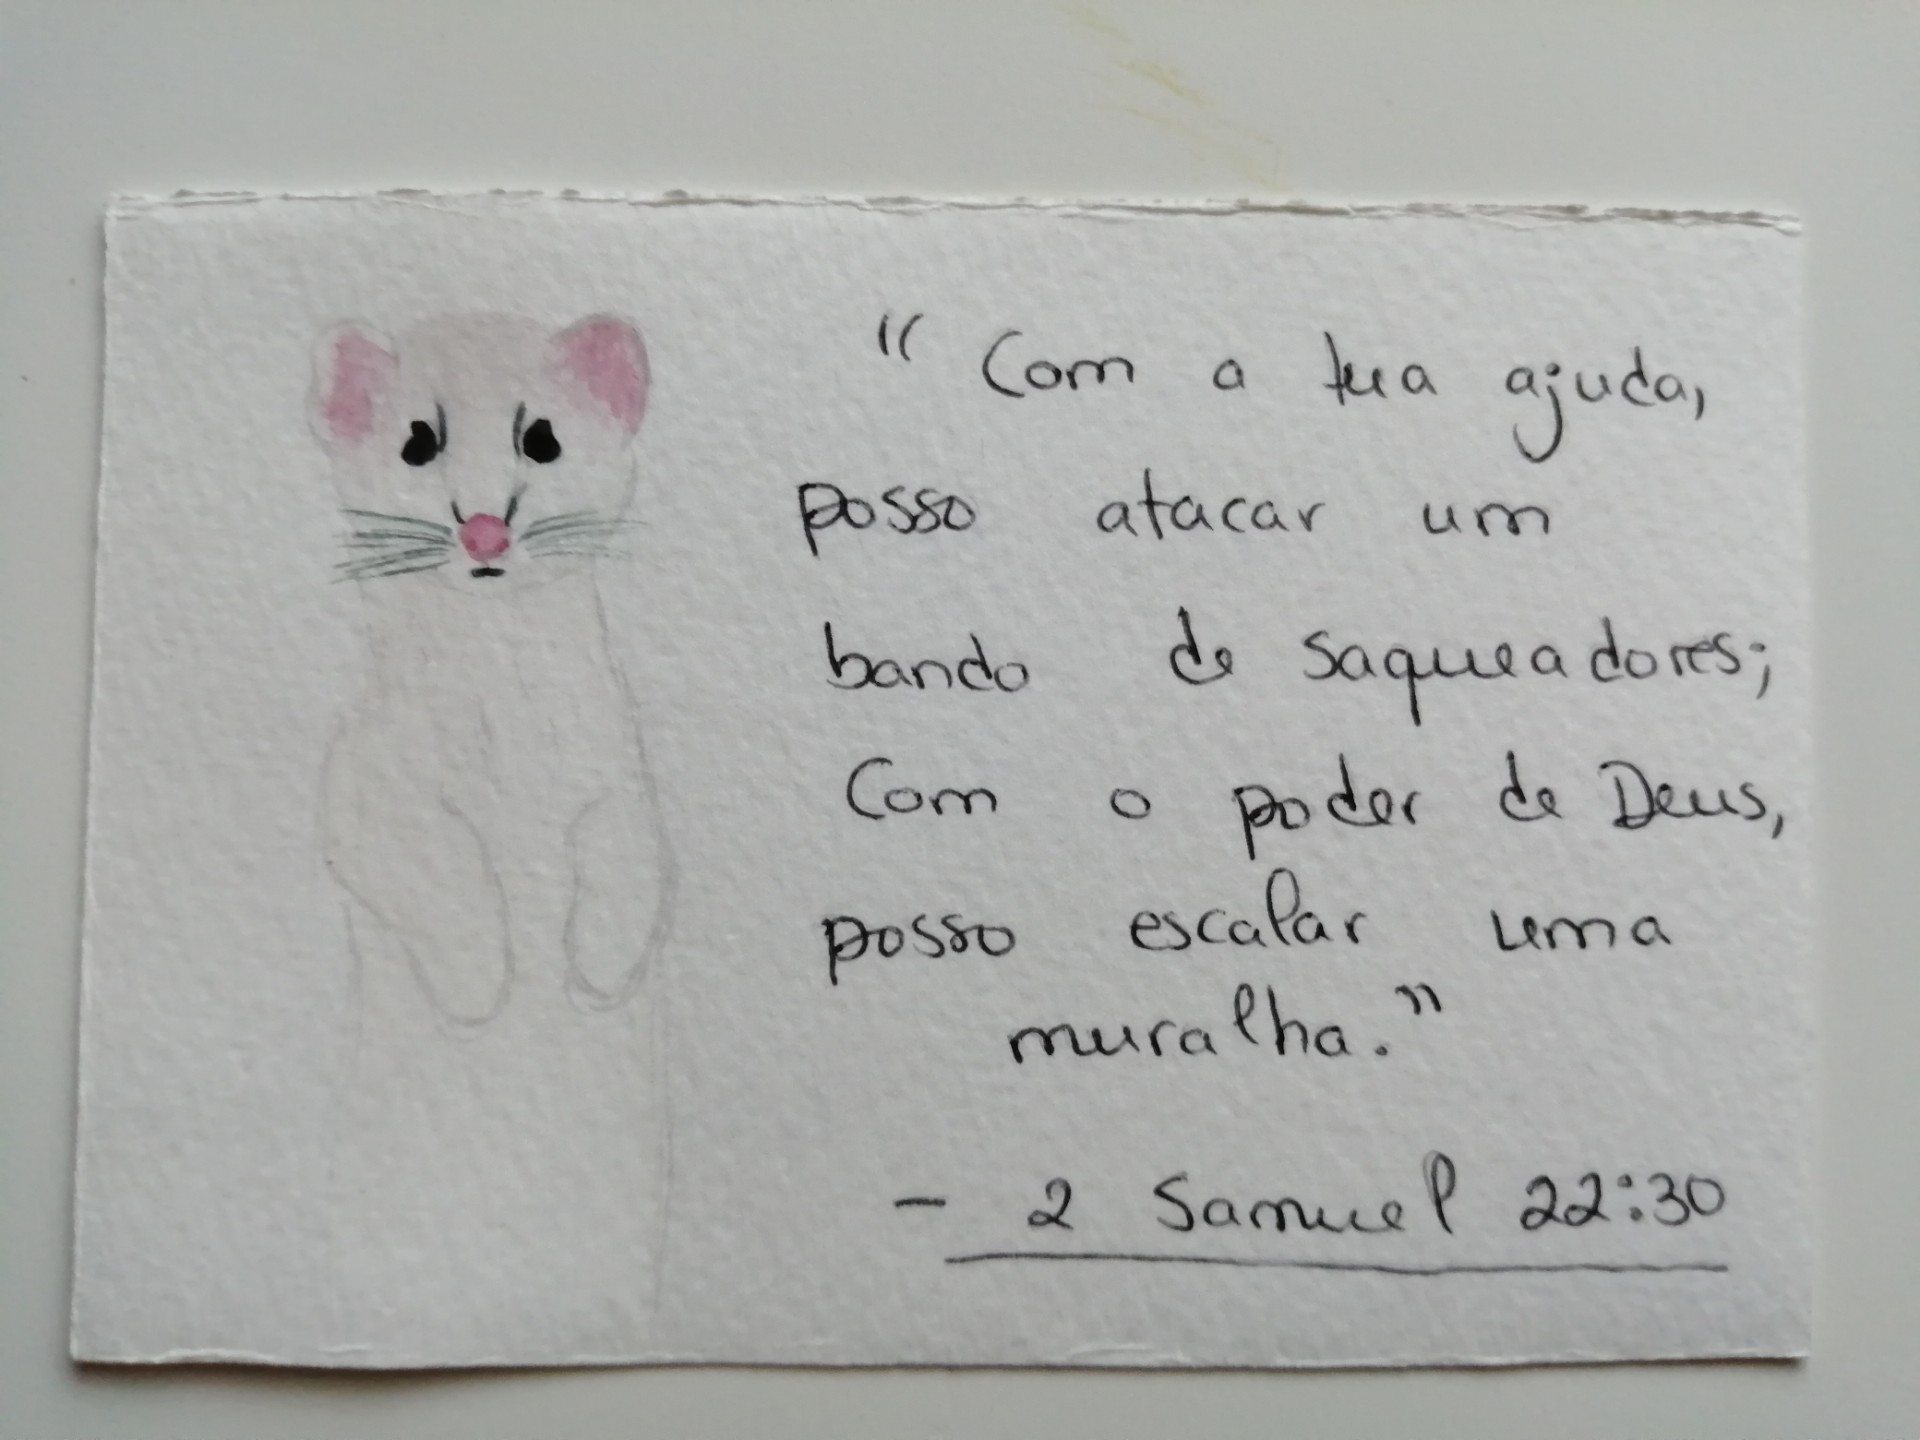 "Com a tua ajuda,
posso atacar um
bando de saqueadores;
Com o poder de Deus,
posso escalar uma
muralha."
- 2 Samuel 22:30